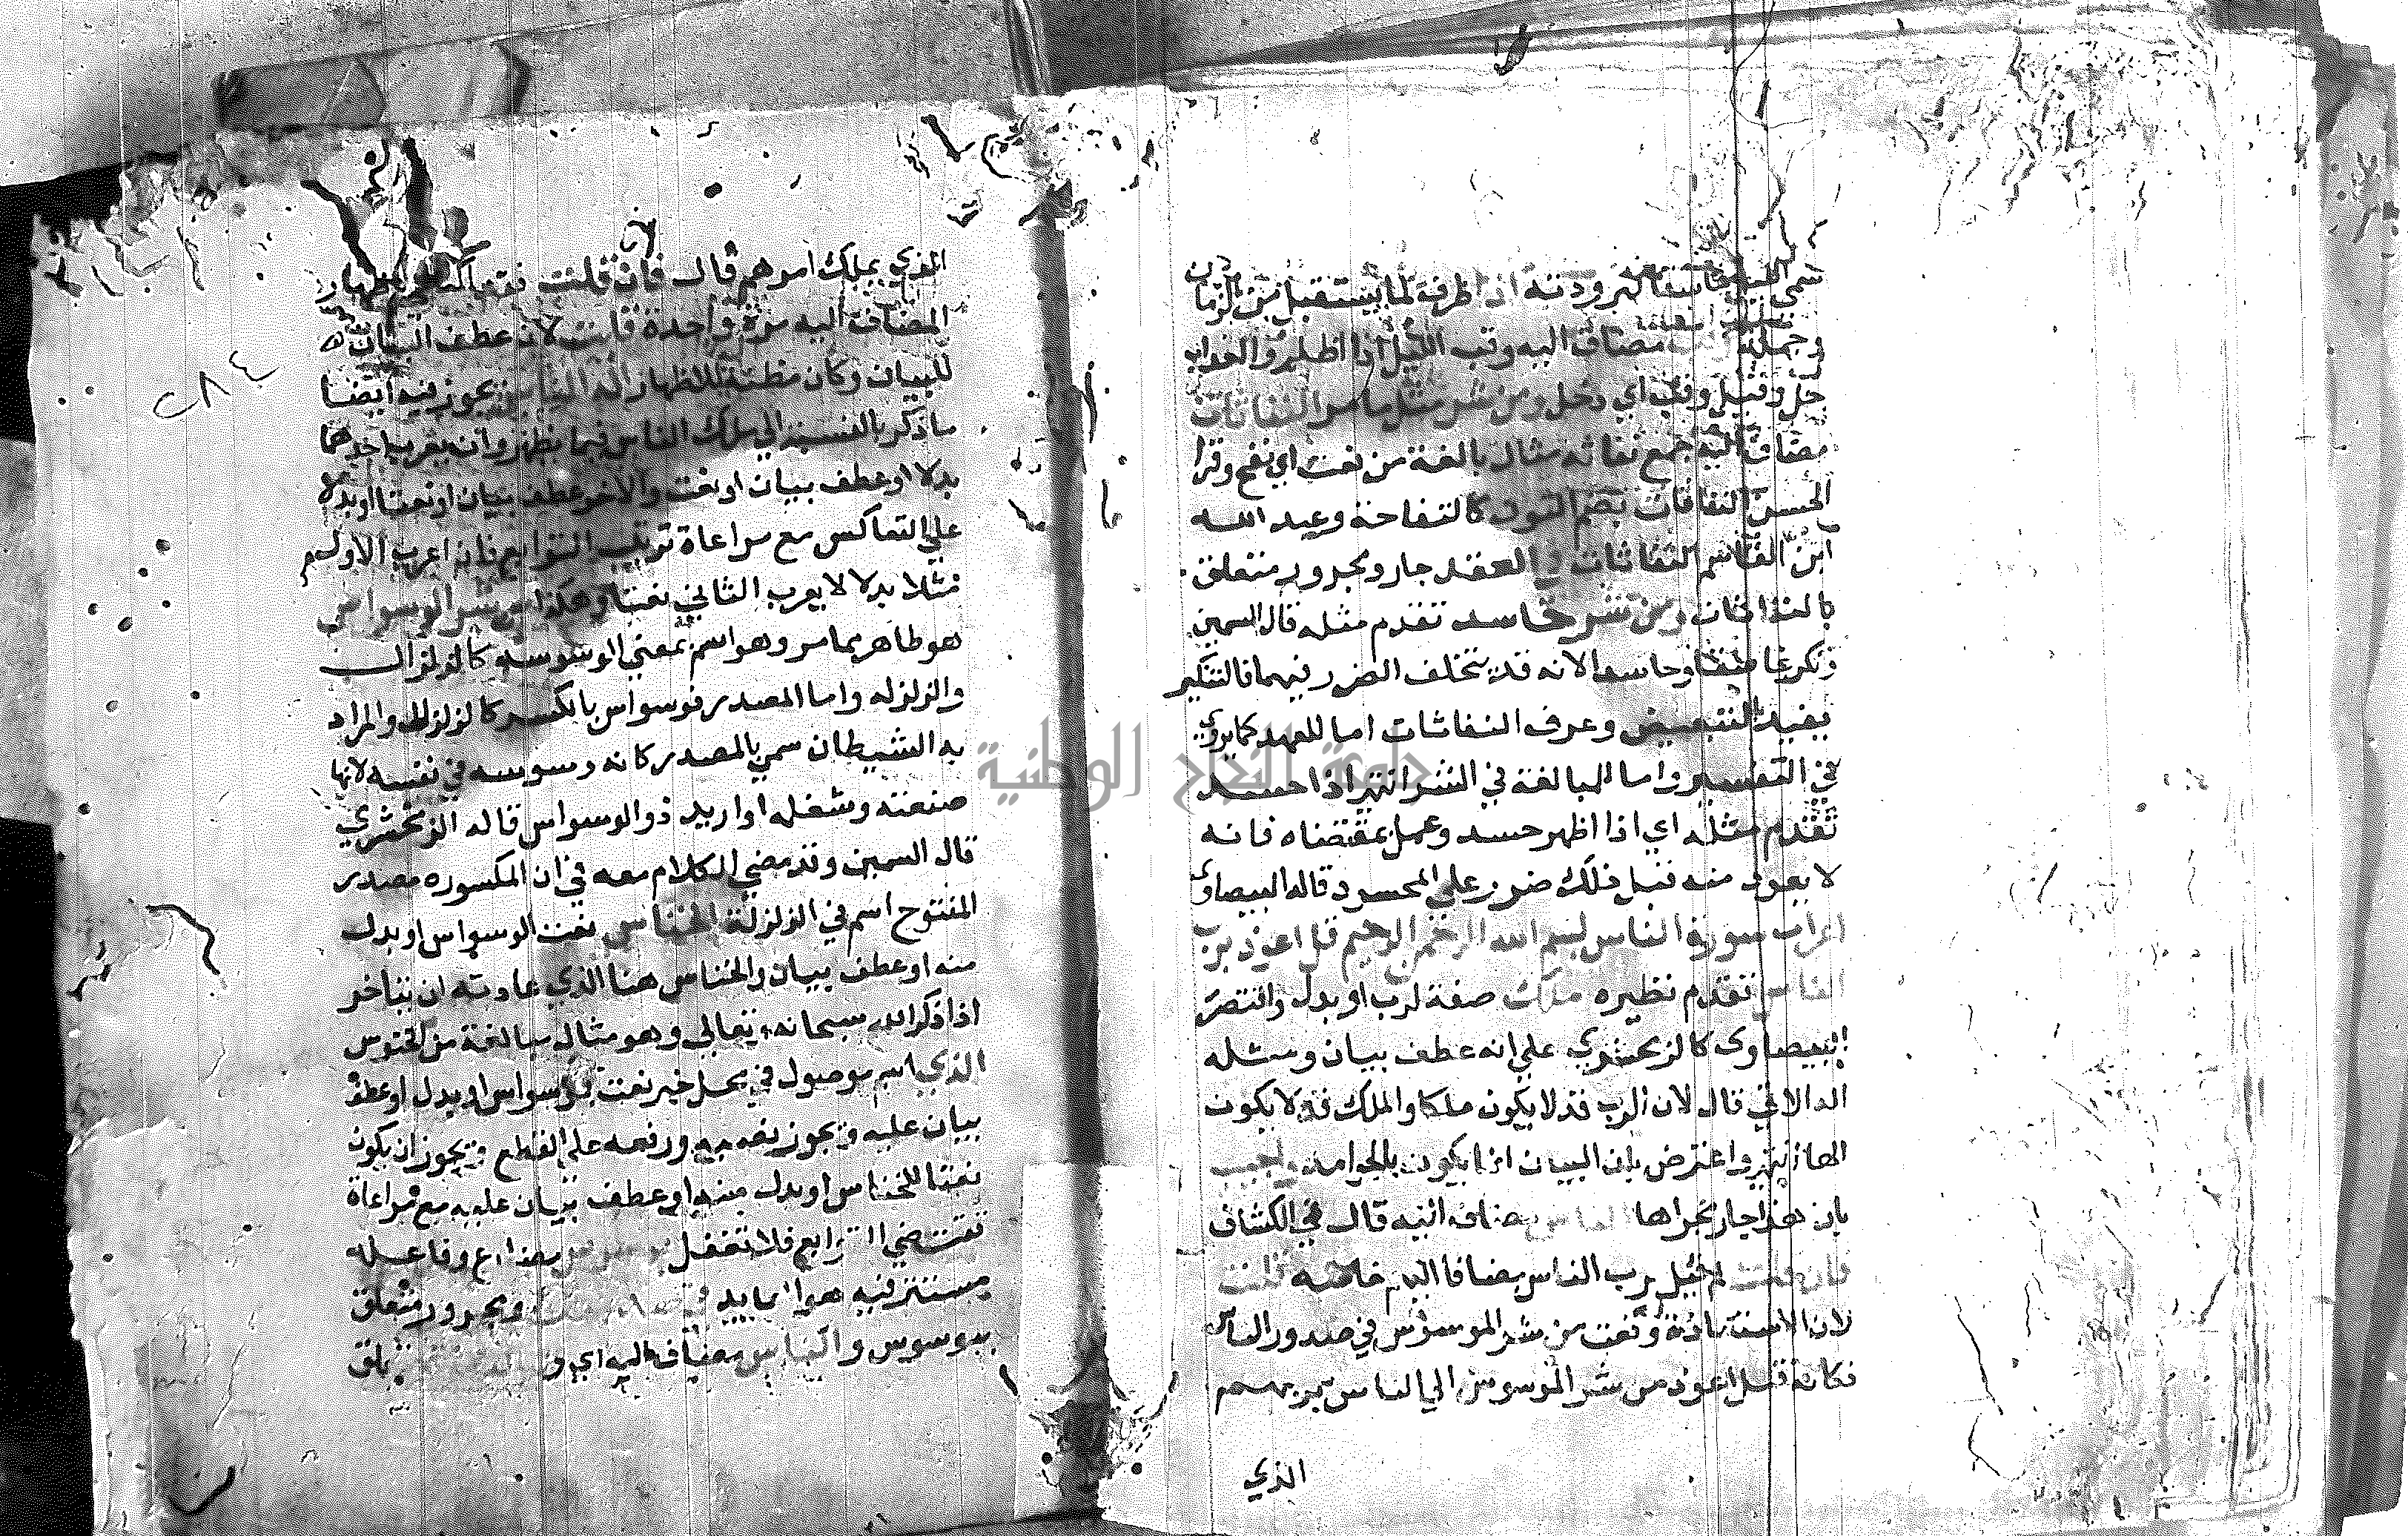 سمي الليل غاسقا لبرودته اذا ظرف لما يستقبل من الزمان
وجملة مضاف اليه وقب الليل اذا اظلم والجواب
حل وقيل وقب اي دخل ومن شر مثل ما مر النفاثات
مضاف اليه جمع نفاثه مثال بالغة من نفث اي نفخ وقرا
الحسن النفاثات بضم النون كالتفاحة وعبد الله
ابن القاسم النفاثات في العقد جار ومجرور متعلق
بالنفاثات ومن شر حاسد تقدم مثله قال السمين
ونكر غاسقا وحاسدا لانه قد يتخلف الضرر فيهما فالتنكير
يفيد التبعيض وعرف النفاثات اما للعهد كما يروى
في التفسير واما المبالغة في الشر انتهى اذا حسد
تقدم مثله اي اذا اظهر حسد وعمل بمقتضاه فانه
لا يعود منه قبل ذلك ضرر على المحسود قاله البيضاوي
اعراب سورة الناس بسم الله الرحمن الرحيم قل اعوذ برب
الناس تقدم نظيره ملك صفة لرب او بدل واقتصر
البيضاوى كالزمحشري علي انه عطف بيان ومثله
اله الا في قال لان الرب قد لا يكون ملكا والملك قد لا يكون
الها انتهى واعترض بان البيان انما يكون بالجوامد واجيب
بان هذا جار مجراها الناس مضاف اليه قال في الكشاف
فان قلت لم قيل برب الناس مضافا اليهم خاصه قلت
لان الاستعاذة وقعت من شر الموسوس في صدور الناس
فكانه قيل اعوذ من شر الموسوس الي الناس بربهم
الذي
الذي يملك امرهم قال فان قلت فهلا اكتفي باظهار
المضاف اليه مرة واحدة قلت لان عطف البيان
للبيان وكان مظنة للاظهار اله الناس يجوز فيه ايضا
ما ذكر بالنسبة الي ملك الناس فيما يظهر وان يعرب احدهما
بدلا او عطف بيان او نعت والاخر عطف بيان او نعتا او بدلا
علي التعاكس مع مراعاة ترتيب التوابع فان اعرب الاول
مثلا بدلا لا يعرب الثاني نعتا وهكذا من شر الوسواس
هو ظاهر بما مر وهو اسم بمعني الوسوسه كالزلزال
والزلزله واما المصدر فوسواس بالكسر كالزلزال والمراد
به الشيطان سمي بالمصدر كانه وسوسه في نفسه لانها
صنعته وشغله او اريد ذو الوسواس قاله الزمحشري
قال السمين وقد مضي الكلام معه في ان المكسوره مصدر
المفتوح اسم في الزلزلة الخناس نعت الوسواس او بدل
منه او عطف بيان والخناس هنا الذي عادته ان يتاخر
اذا ذكر الله سبحانه وتعالي وهو مثال مبالغة من الخنوس
الذي اسم موصول في محل خبر نعت للوسواس او بدل او عطف
بيان عليه ويجوز نصبه ورفعه علي القطع ويجوز ان يكون
نعتا للخناس او بدل منه او عطف بيان عليه مع مراعاة
مقتضي التوابع فلا تغفل يوسوس مضارع وفاعله
مستتر فيه هو العايد في صدور جار ومجرور متعلق
بيوسوس والناس مضاف اليه اي
٢٨٤
جامعة النجاح الوطنية